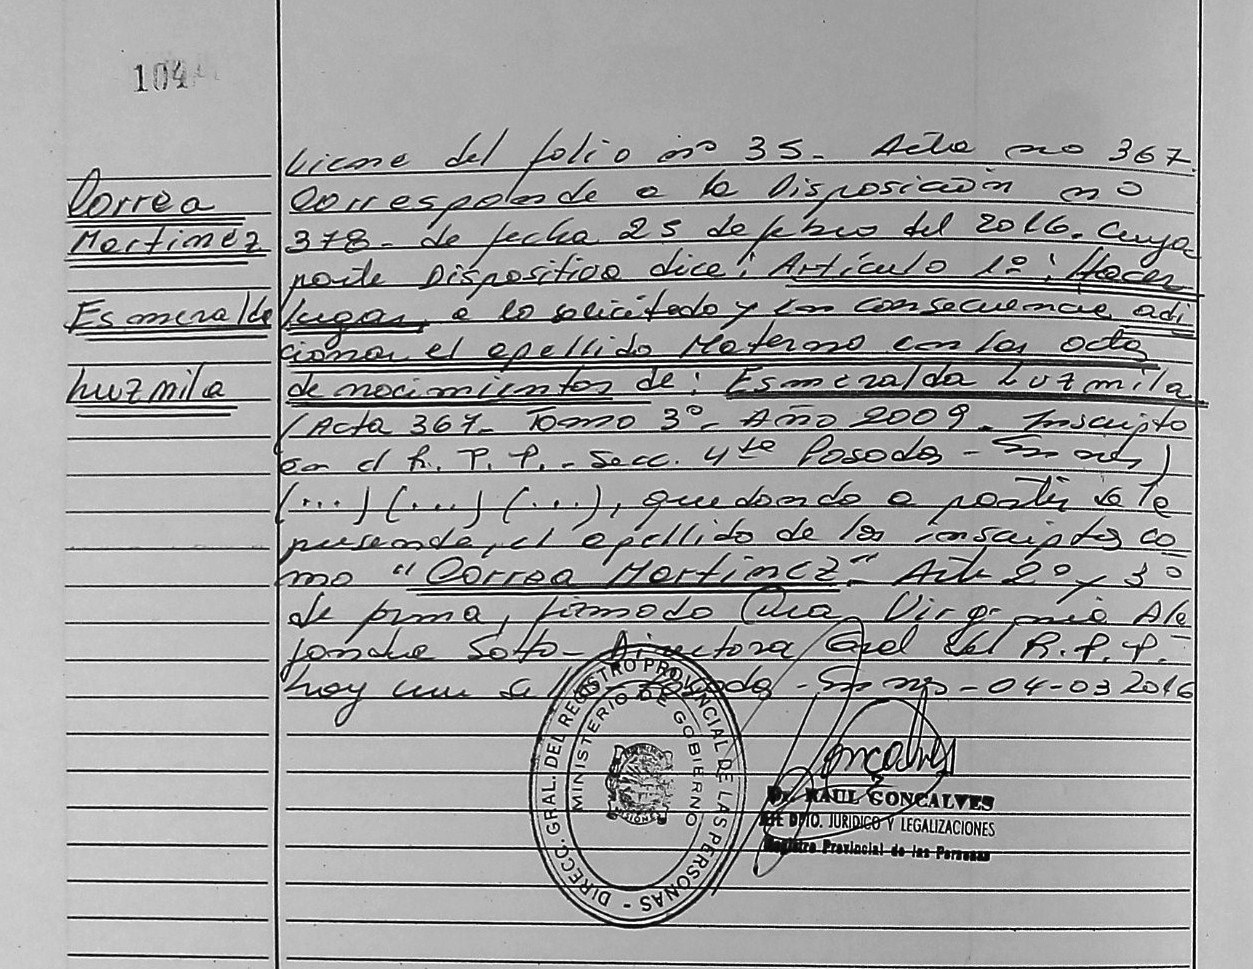 104
Viene del folio nº 35- Acta no 367.
Correa
Corresponde a la Disposición nº
Martinez
378- de fecha 25 de febrero del 2016. Cuya
parte Dispositiva dice: Artículo 1º: Hacer
Esmeralda
lugar, a lo solicitado y en consecuencia adi
cionar el apellido Materno en las actas
Luzmila
de nacimientos de: Esmeralda Luzmila
(Acta 367- Tomo 3º- Año 2009- Inscripto
en el R. P. P.- Secc. 4ta Posadas - Mnes)
(...) (...) (...), quedando a partir de la
presente, el apellido de los inscriptos co
mo "Correa Martinez"- Art 2º y 3º
de forma, firmado Virginia Ale
jandra Sotto- Directora Gral del R. P. P.
hay un sello- Posadas - Mnes - 04-03 2016
DIRECC. GRAL. DEL REGISTRO PROVINCIAL DE LAS PERSONAS -
MINISTERIO DE GOBIERNO
MISIONES
Goncalves
Dr. RAUL GONCALVES
JEFE DPTO. JURIDICO Y LEGALIZACIONES
Registro Provincial de las Personas